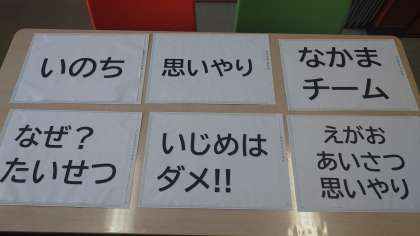 いのち
思いやり
なかま
チーム
なぜ？
たいせつ
いじめは
ダメ!!
えがお
あいさつ
思いやり